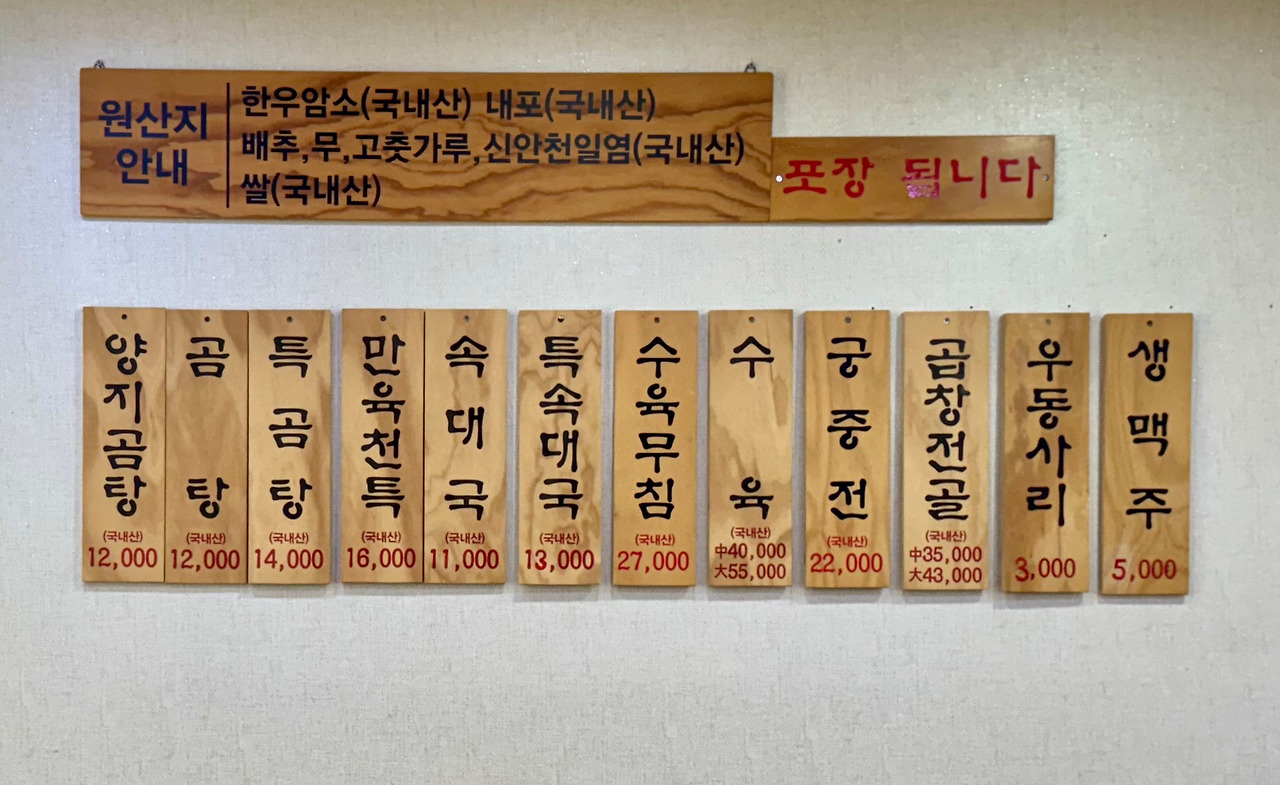 원산지
안내
한우암소(국내산) 내포(국내산)
배추,무,고춧가루,신안천일염(국내산)
쌀(국내산)
포장 됩니다
양지곰탕
(국내산)
12,000
곰탕
(국내산)
12,000
특곰탕
(국내산)
14,000
만육천특
(국내산)
16,000
속대국
(국내산)
11,000
특속대국
(국내산)
13,000
수육무침
(국내산)
27,000
수육
(국내산)
中40,000
大55,000
궁중전
(국내산)
22,000
곱창전골
(국내산)
中35,000
大43,000
우동사리
3,000
생맥주
5,000